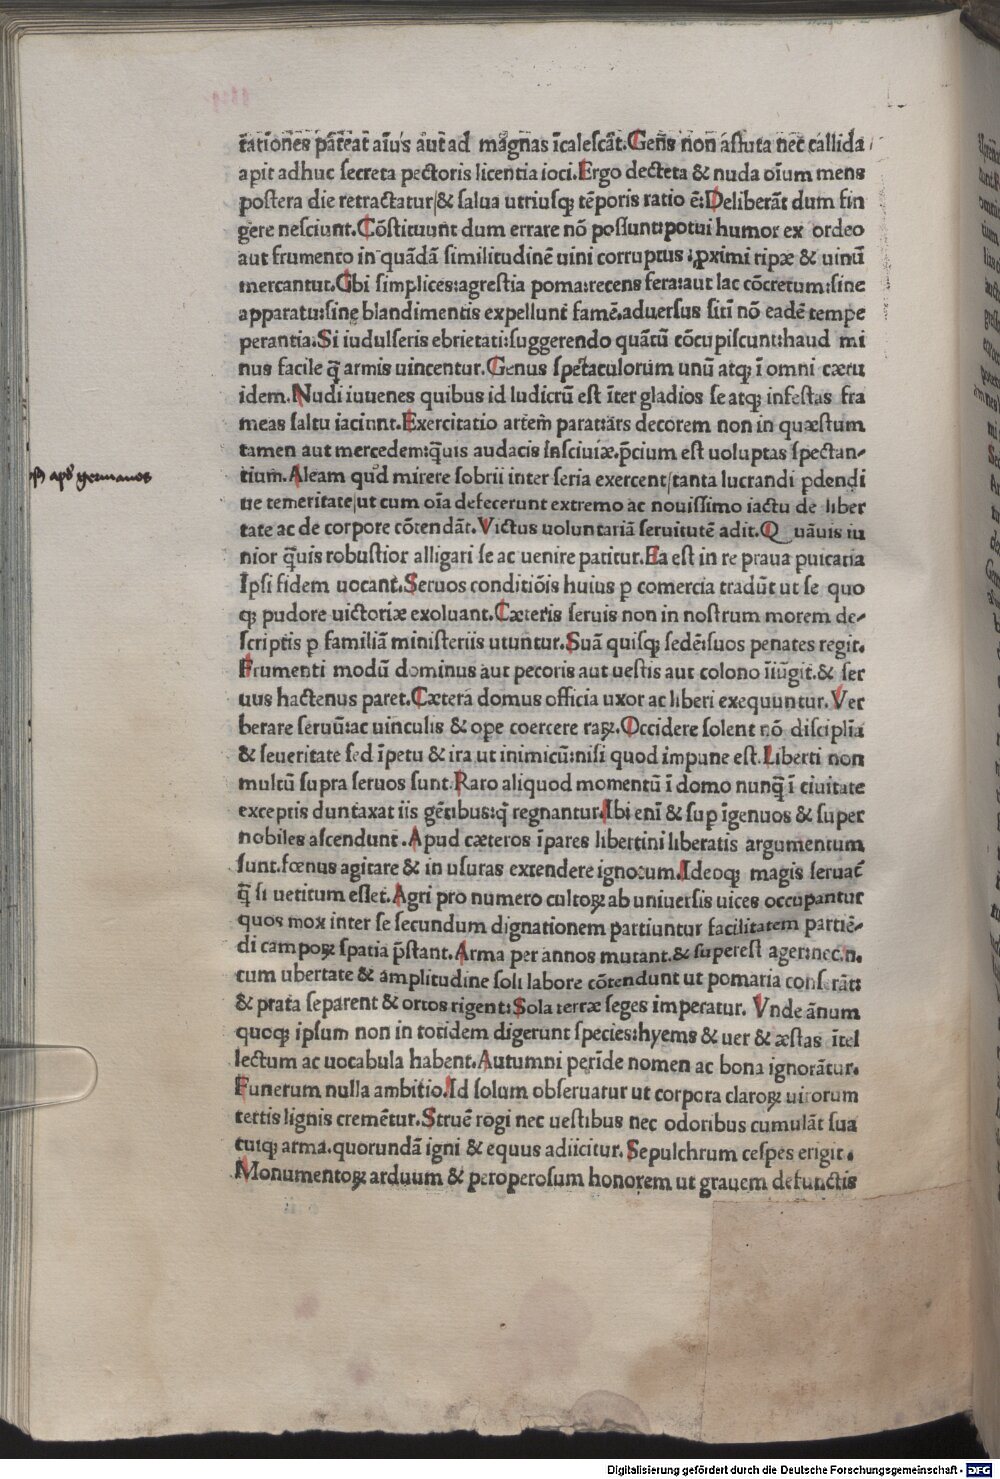 tatiōnes pāteat aīus aut ad magnas īcalescāt. Gens non astuta nec callida
apit adhuc secreta pectoris licentia ioci. Ergo decteta & nuda oīum mens
postera die retractatur/& salua utriusqꝫ tēporis ratio ē: Deliberāt dum fin
gere nesciunt. Cōstituunt dum errare nō possunt: potui humor ex ordeo
aut frumento in quādā similitudinē uini corruptus: ꝓximi ripæ & uinū
mercantur. Cibi simplices: agrestia poma: recens fera: aut lac cōcretum: sine
apparatu: sine blandimentis expellunt famē. aduersus sitī nō eadē tempe
perantia. Si iudulseris ebrietati: suggerendo quātū cōcupiscunt: haud mi
nus facile q̄ armis uincentur. Genus spectaculorum unū atqꝫ ī omni cætu
idem. Nudi iuuenes quibus id ludicrū est īter gladios se atqꝫ infestas fra
meas saltu iaciunt. Exercitatio artem̄ parat: ars decorem non in quæstum
tamen aut mercedem: q̄uis audacis lasciuiæ. p̄cium est uoluptas spectan-
tium. Aleam quid mirere sobrii inter seria exercent/tanta lucrandi ꝑdendi
ue temeritate/ut cum oīa defecerunt extremo ac nouissimo iactu de liber
tate ac de corpore cōtendāt. Victus uoluntariā seruitutē adit. Q uāuis iu
nior q̄uis robustior alligari se ac uenire patitur. Ea est in re praua puicatia
Ipsi fidem uocant. Seruos conditiōis huius ꝑ comercia tradūt ut se quo
qꝫ pudore uictoriæ exoluant. Cæteris seruis non in nostrum morem de-
scriptis ꝑ familiā ministeriis utuntur. Suā quisqꝫ sedē: suos penates regit.
Frumenti modū dominus aut pecoris aut uestis aut colono īiūgit. & ser
uus hactenus paret. Cætera domus officia uxor ac liberi exequuntur. Ver
berare seruū: ac uinculis & ope coercere raꝝ. Occidere solent nō disciplīa
& seueritate sed īpetu & ira ut inimicū: nisi quod impune est. Liberti non
multū supra seruos sunt. Raro aliquod momentū ī domo nunq̄ ī ciuitate
exceptis duntaxat iis gētibus: q̄ regnantur. Ibi enī & sup īgenuos & super
nobiles ascendunt. Apud cæteros īpares libertini liberatis argumentum
sunt. fœnus agitare & in usuras extendere ignotum. Ideoqꝫ magis seruat̄
q̄ si uetitum esset. Agri pro numero cultoꝝ ab uniuersis uices occupantur
quos mox inter se secundum dignationem partiuntur facilitatem partiē-
di campoꝝ spatia p̄stant. Arma per annos mutant. & superest ager: nec. n.
cum ubertate & amplitudine soli labore cōtendunt ut pomaria conserāt:
& prata separent & ortos rigent: Sola terræ seges imperatur. Vnde ānum
quoqꝫ ipsum non in totidem digerunt species: hyems & uer & æstas ītel
lectum ac uocabula habent. Autumni perīde nomen ac bona ignorātur.
Funerum nulla ambitio. Id solum obseruatur ut corpora claroꝝ uirorum
certis lignis cremētur. Struē rogi nec uestibus nec odoribus cumulāt sua
cuiqꝫ arma. quorundā igni & equus adiicitur. Sepulchrum cespes erigit.
Monumentoꝝ arduum & peroperosum honorem ut grauem defunctis
apd germanos
Digitalisierung gefördert durch die Deutsche Forschungsgemeinschaft - DFG